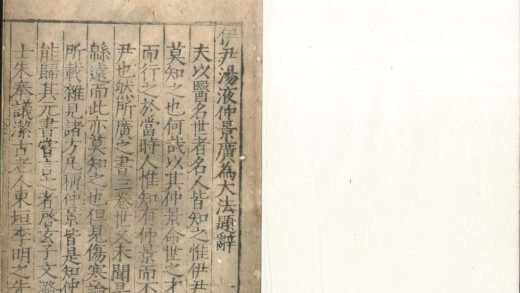 伊尹湯液仲景廣為大法題辭
夫以醫名世者名人皆知之惟伊尹
莫知之也何哉以其仲景命世之才
而行之於當時人惟知有仲景而不
尹也然所廣之書三卷世又未聞是
緜遠而此亦莫知之也但見傷寒論
所載雜見諸方凡稱仲景皆是知仲
能歸其元書者玄子文潞
士朱奉議潔古老人東垣李明之先